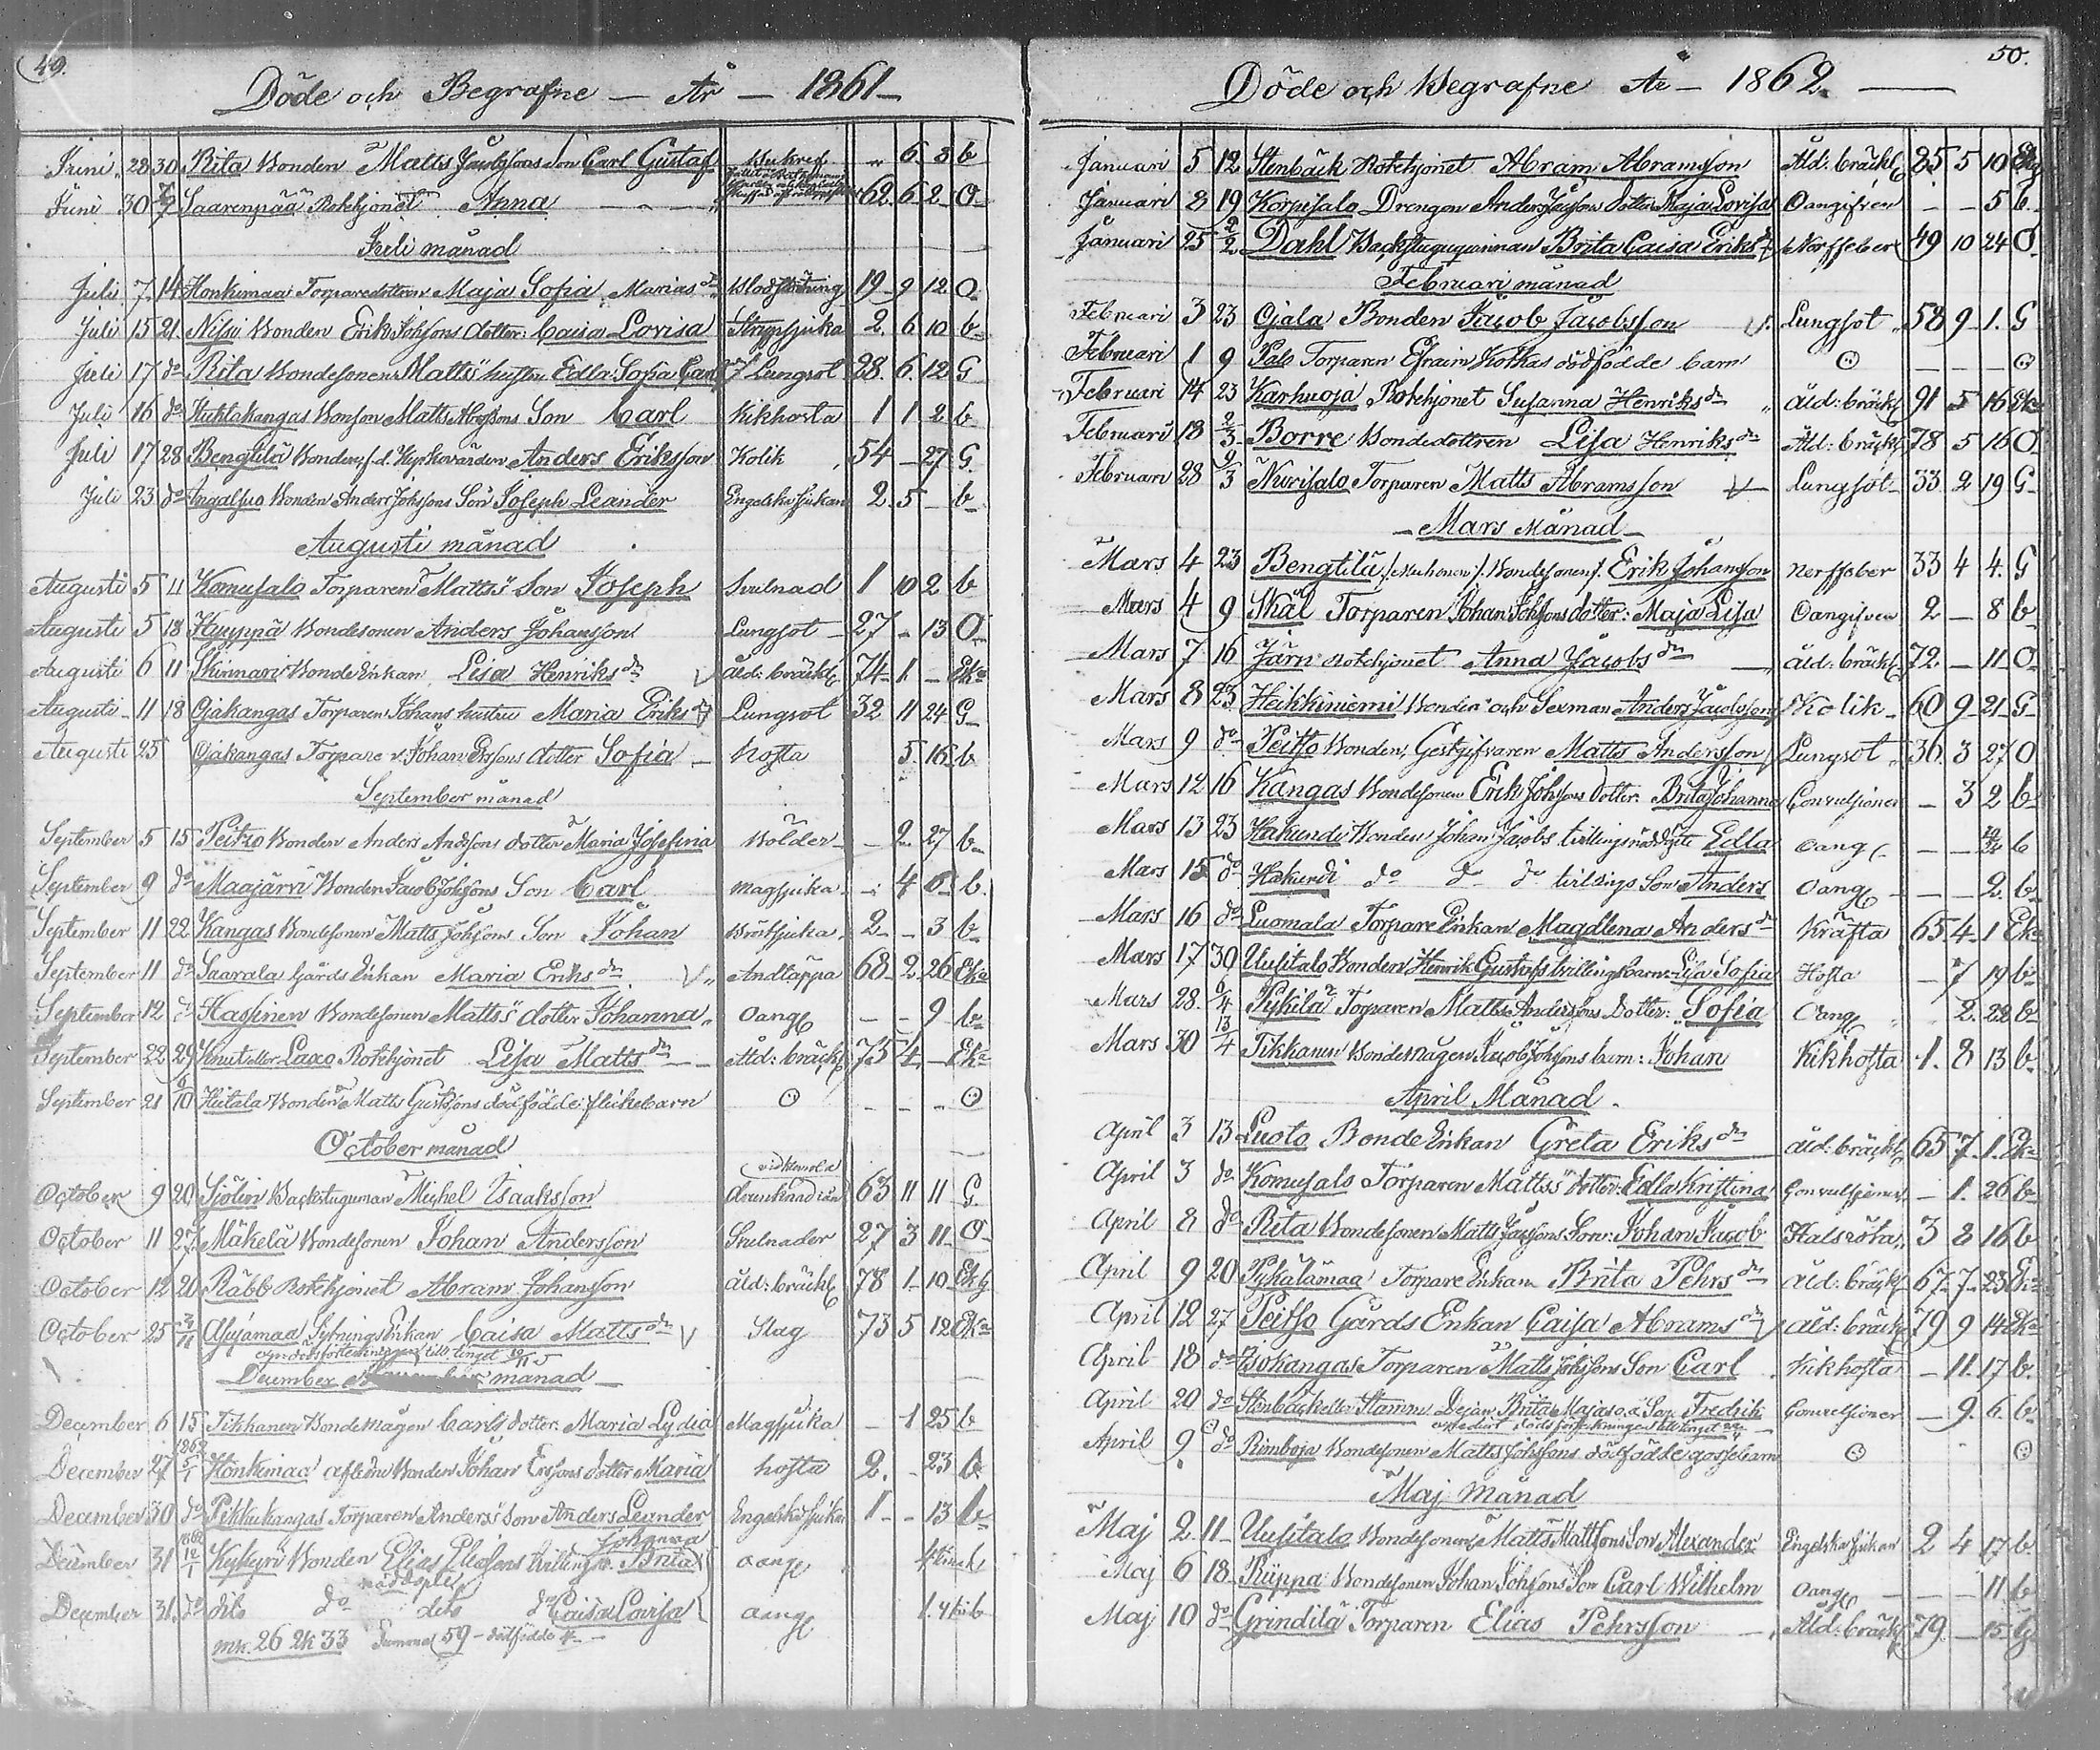 49.
Döde och Begrafne — År — 1861 —
Juni 28 30 Rita Bonden Matts Jacobssons Son Carl Gustaf 6 8 b
Juni 30 7/7 Saarenpää Rotehjonet Anna 62 6 2 O
Juli månad
Juli 7 14 Honkimaa Torparedottren Maja Sofia Marias dr Blodstörtning 19 9 12 O
Juli 15 21 Bonden Erik Johssons dotter: Caisa Lovisa Strypsjuka 2 6 10 b
Juli 17 do Rita Bondesonen Matts's hustru Edla Sofia Carls Lungsot 28 6 12 G
Juli 16 do Huhtakangas Bonden Matts Son Carl Kikhosta 1 1 2 b
Juli 17 28 Bengtilä Bonden, f.d. Kyrkovärden Anders Eriksson Kolik 54 — 27 G
Juli 23 do Bonden Anders Johssons Son Joseph Leander Engelska sjukan 2 5 — b
Augusti månad
Augusti 5 11 Komusalo Torparen Matts's Son Joseph Svulnad 1 10 2 b
Augusti 5 18 Kyyppä Bondesonen Anders Johansson Lungsot 27 — 13 O
Augusti 6 11 Skinnari Bonde Enkan Lisa Henriks dr åld: bräckl 74 1 — Eka
Augusti 11 18 Ojakangas Torparen Johans hustru Maria Eriks dr Lungsot 32 11 24 G
Augusti 25 Ojakangas Torpare v. Johan Erssons dotter Sofia hosta 5 16 b
September månad
September 5 15 Peitzo Bonden Anders Andssons dotter Maria Josefina Bölder — 2 27 b
September 9 do Maajärvi Bonden Jacob Johssons Son Carl magsjuka — 4 6 b
September 11 22 Kangas Bondesonen Matts Johssons Son Johan Bröstsjuka 2 — 3 b
September 11 do Saarala Gårds Enkan Maria Eriks dr Andtäppa 68 2 26 Eka
September 12 do Hassinen Bondesonen Matts's dotter Johanna Oang — — 9 b
September 22 29 Knut eller Laxo Rotehjonet Lisa Matts dr Åld: bräckl 75 4 — Eka
September 21 6/10 Hietala Bonden Matts Gustssons dödfödde flickebarn ⊙ — — — ⊙
October månad
October 9 20 Sjölin Backstuguman Michel Isaaksson drunknad 63 11 11 G
October 11 27 Mäkelä Bondesonen Johan Andersson Svulnader 27 3 11 O
October 12 20 Räbb Rotehjonet Abram Johansson åld: bräckl 78 1 10 Ekg
October 25 3/11 Alyjamaa Sytnings Enkan Caisa Matts dr Slag 73 5 12 Eka
December månad
December 6 15 Tikkanen Bondemågen Carls dotter Maria Lydia Magsjuka — 1 25 b
December 27 1862 5/1 Honkimaa aflidne Bonden Johan Erssons dotter Maria hosta 2 — 23 b
December 30 do Pitkäkangas Torparen Anders's Son Anders Leander Engelska sjukan 1 — 13 b
Johanna
December 31 1862 12/1 Kykyri Bonden Elias Eliassons tvillingb. Brita oang b
nöddöpte
December 31 do dito do dito do Caisa Lovisa oang b
mk. 26 qk 33 Summa 59 — dödfödde
50.
Döde och Begrafne År — 1862. —
Januari 5 12 Stenbäck Rotehjonet Abram Abramsson Åld: bräckl 85 5 10 Ekg
Januari 8 19 Korpisalo Drengen Anders Dotter Maja Lovisa Oangifven — — 5 b
Januari 25 2/2 Dahl Backstuguqvinnan Brita Caisa Eriks dr Nerffeber 49 10 24 O
Februari månad
Februari 3 23 Ojala Bonden Jacob Jacobsson Lungsot 58 9 1 G
Februari 1 9 Palo Torparen Efraim Kotkas dödfödde barn ⊙ — — ⊙
Februari 14 23 Karhuoja Rotehjonet Susanna Henriks dr åld: bräckl 91 5 16 Eka
Februari 18 2/3 Borre Bondedottren Lisa Henriks dr Åld: bräckl 78 5 16 O
Februari 28 9/3 Nurisalo Torparen Matts Abramsson Lungsot 33 2 19 G
Mars Månad
Mars 4 23 Bengtilä Bondesonen Erik Johansson nerffeber 33 4 4 G
Mars 4 9 Skäl Torparen Johan Johssons dotter: Maja Lisa Oangifven 2 — 8 b
Mars 7 16 Järn Rotehjonet Anna Jacobs dr åld: bräckl 72 — 11 O
Mars 8 23 Heikkiniemi Bonden och Sexman Anders Jacobsson Kolik 60 9 21 G
Mars 9 do Peitso Bonden, Gestgifvaren Matts Andersson Lungsot 36 3 27 O
Mars 12 16 Kangas Bondesonen Erik Johssons dotter: Brita Johanna Convulsioner — 3 2 b
Mars 13 23 Hakundi Bonden Johan Jacobs tvillings nöddöpte Edla oang — — b
Mars 15 do Hakundi do do do tvillings Son Anders Oang — — 2 b
Mars 16 do Luomala Torpare Enkan Magdlena Anders dr Kräfta 65 4 1 Eka
Mars 17 30 Uusitalo Bonden Henrik Gustafs tvillingbarn: Lisa Sofia Hosta — 7 19 b
Mars 28 6/4 Pykilä Torparen Matts Anderssons Dotter: Sofia Oang 2 22 b
Mars 30 13/4 Tikkanen Bondemågen Jacob Johssons barn: Johan Kikhosta 1 8 13 b
April Månad
April 3 13 Luoto Bonde Enkan Greta Eriks dr åld: bräckl 65 7 1 Eka
April 3 do Komusalo Torparen Matts's dotter: Edla Kristina Convulsioner — 1 26 b
April 8 do Rita Bondesonen Matts Son: Johan Jacob Halsröta 3 8 16 b
April 9 20 Pyhälämaa Torpare Enkan Brita Pehrs dr åld: bräckl 67 7 23 Eka
April 12 27 Peitso Gårds Enkan Caisa Abrams dr åld: bräckl 79 9 14 Eka
April 18 do Isokangas Torparen Matts Johssons Son Carl Kikhosta — 11 17 b
April 20 do Stenbäck eller Stamm Dejan Brita Majas o.ä. Son Fredrik Convulsioner — 9 6 b
April 9 do Rimboja Bondesonen Matts Johssons dödfödde gossebarn ⊙ ⊙
Maj månad
Maj 2 11 Uusitalo Bondesonen Matts Mattssons Son Alexander Engelska sjukan 2 4 17 b
Maj 6 18 Küppa Bondesonen Johan Johssons Son Carl Wilhelm Oang — — 11 b
Maj 10 do Grindilä Torparen Elias Pehrsson Åld: bräckl 79 — 15 G